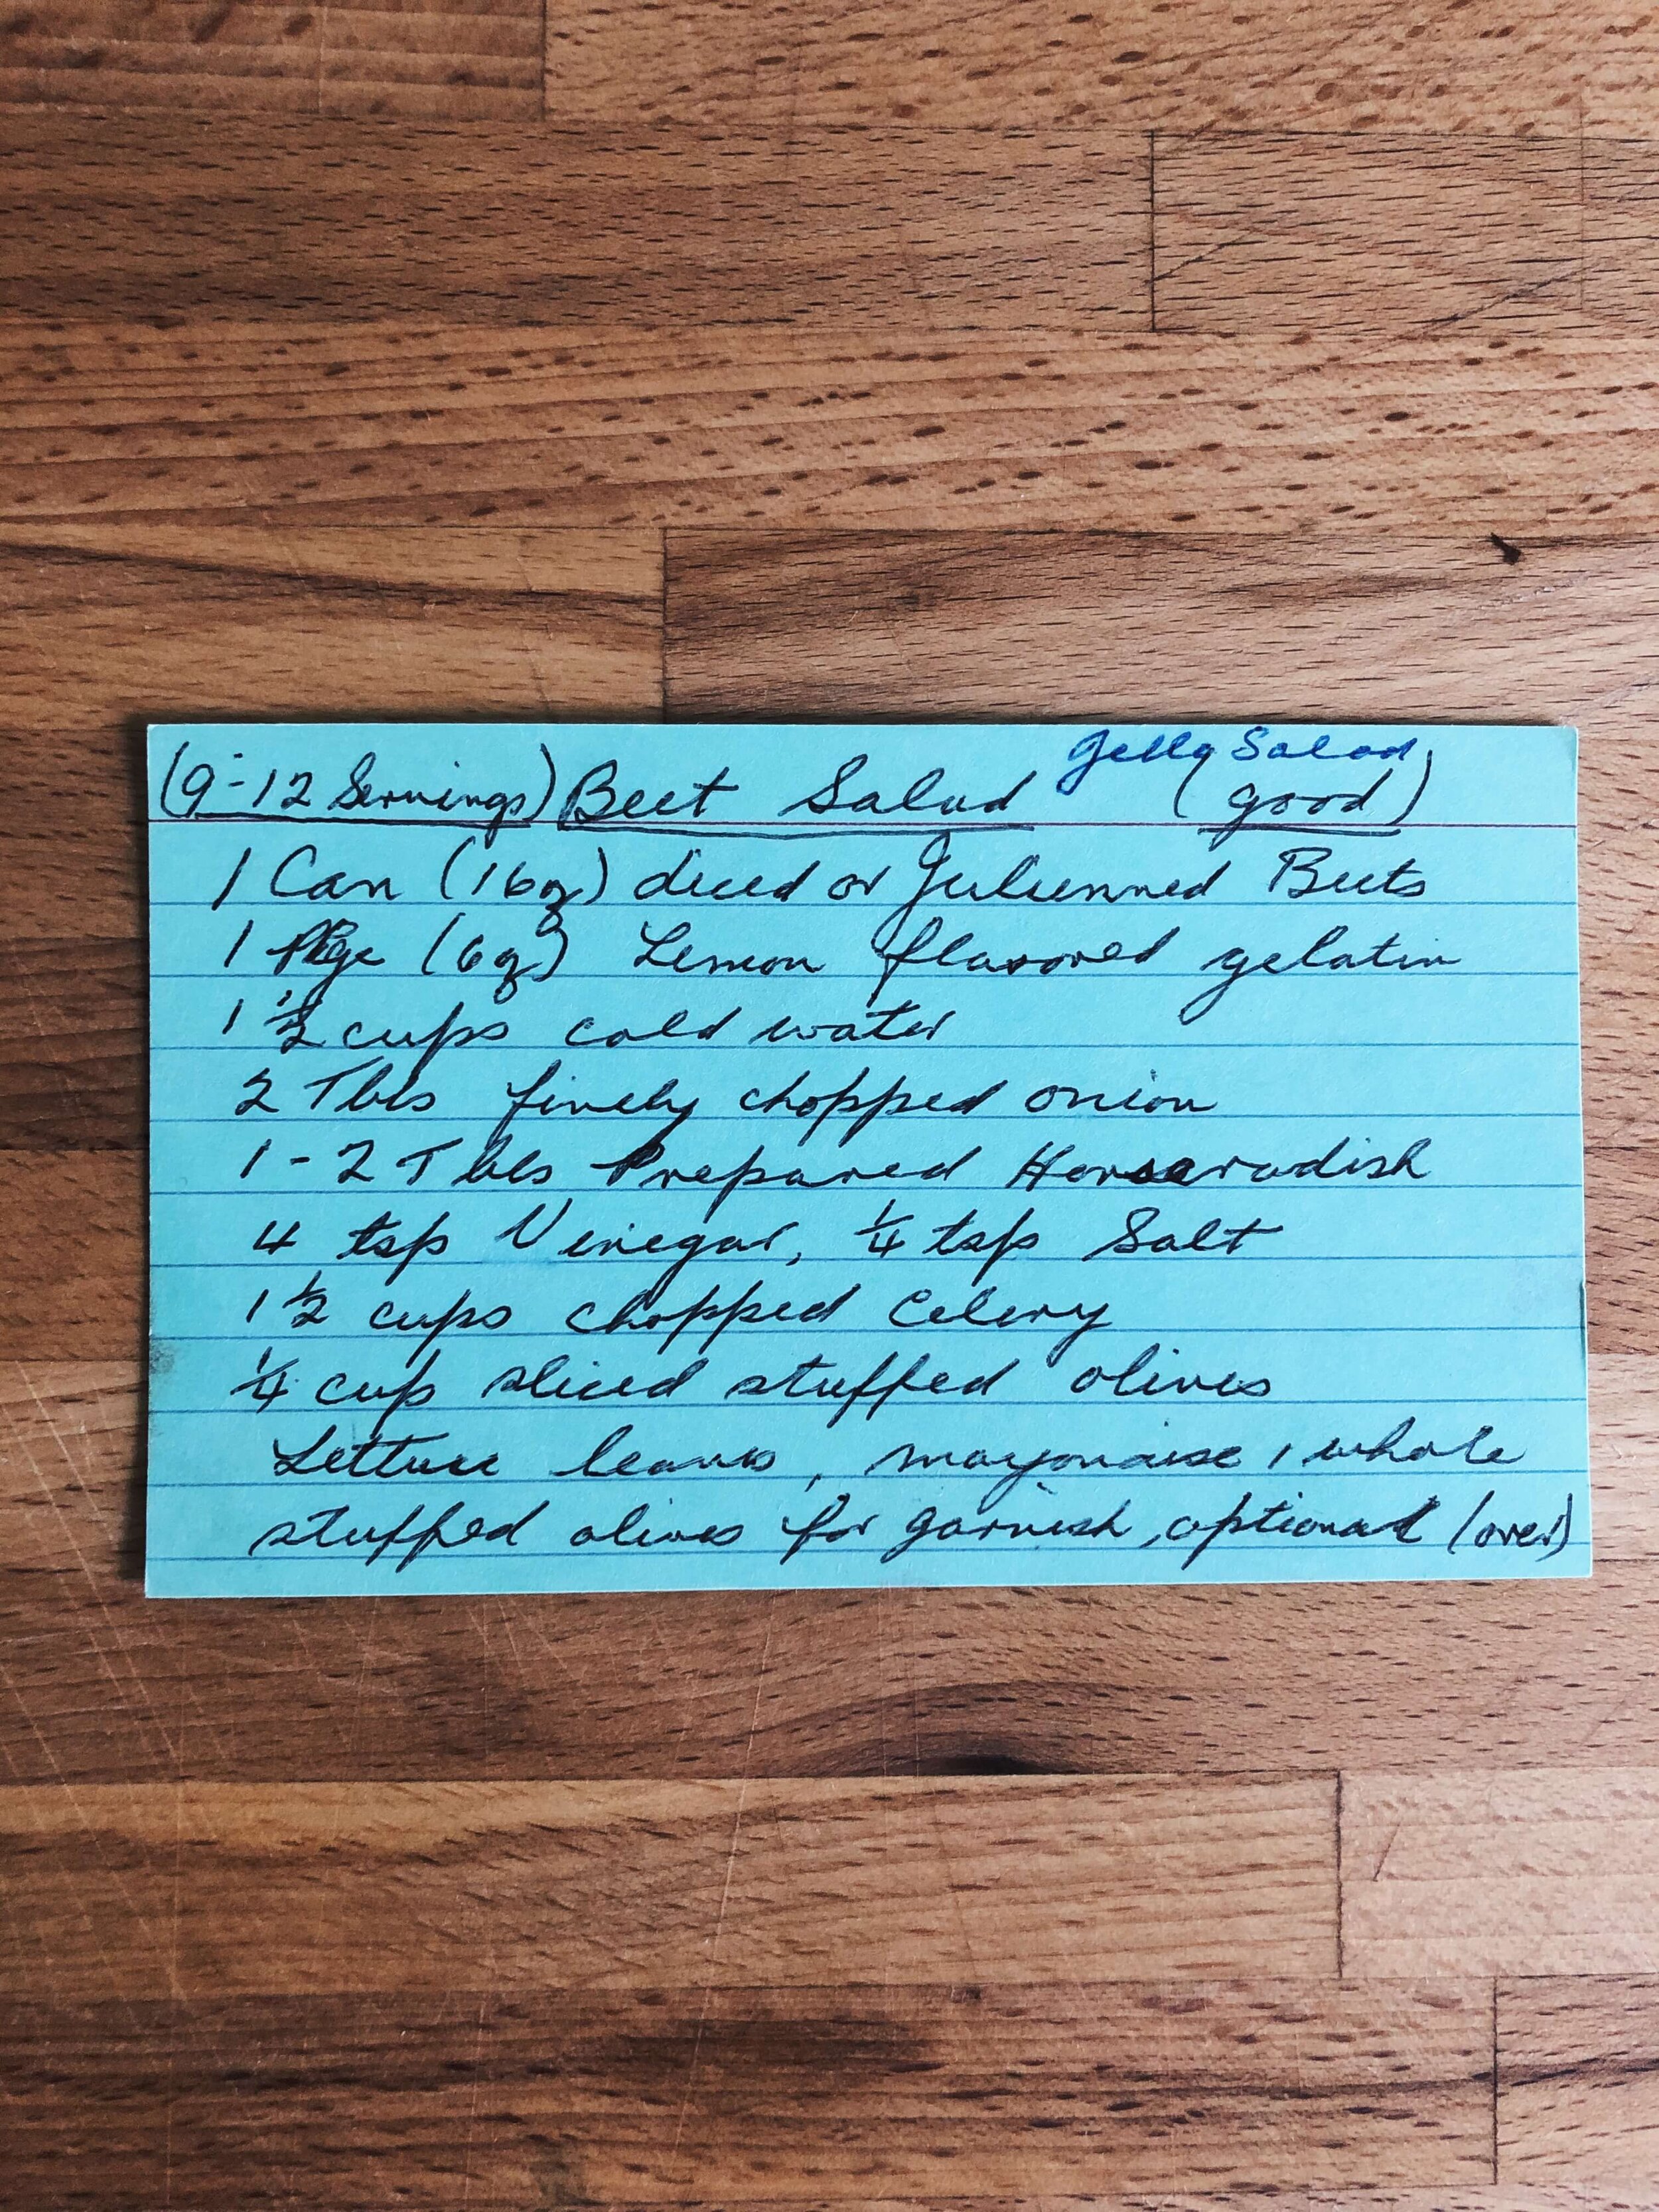 Jelly Salad
(9-12 Servings) Beet Salad (good)
1 Can (16oz) diced or Julienned Beets
1 Pkge (6oz) Lemon flavored gelatin
1 1/2 cups cold water
2 Tbls finely chopped onion
1-2 Tbls Prepared Horseradish
4 tsp Vinegar, 1/4 tsp Salt
1 1/2 cups chopped Celery
1/4 cup sliced stuffed olives
Lettuce leaves, mayonaise, whole
stuffed olives for garnish, optional (over)